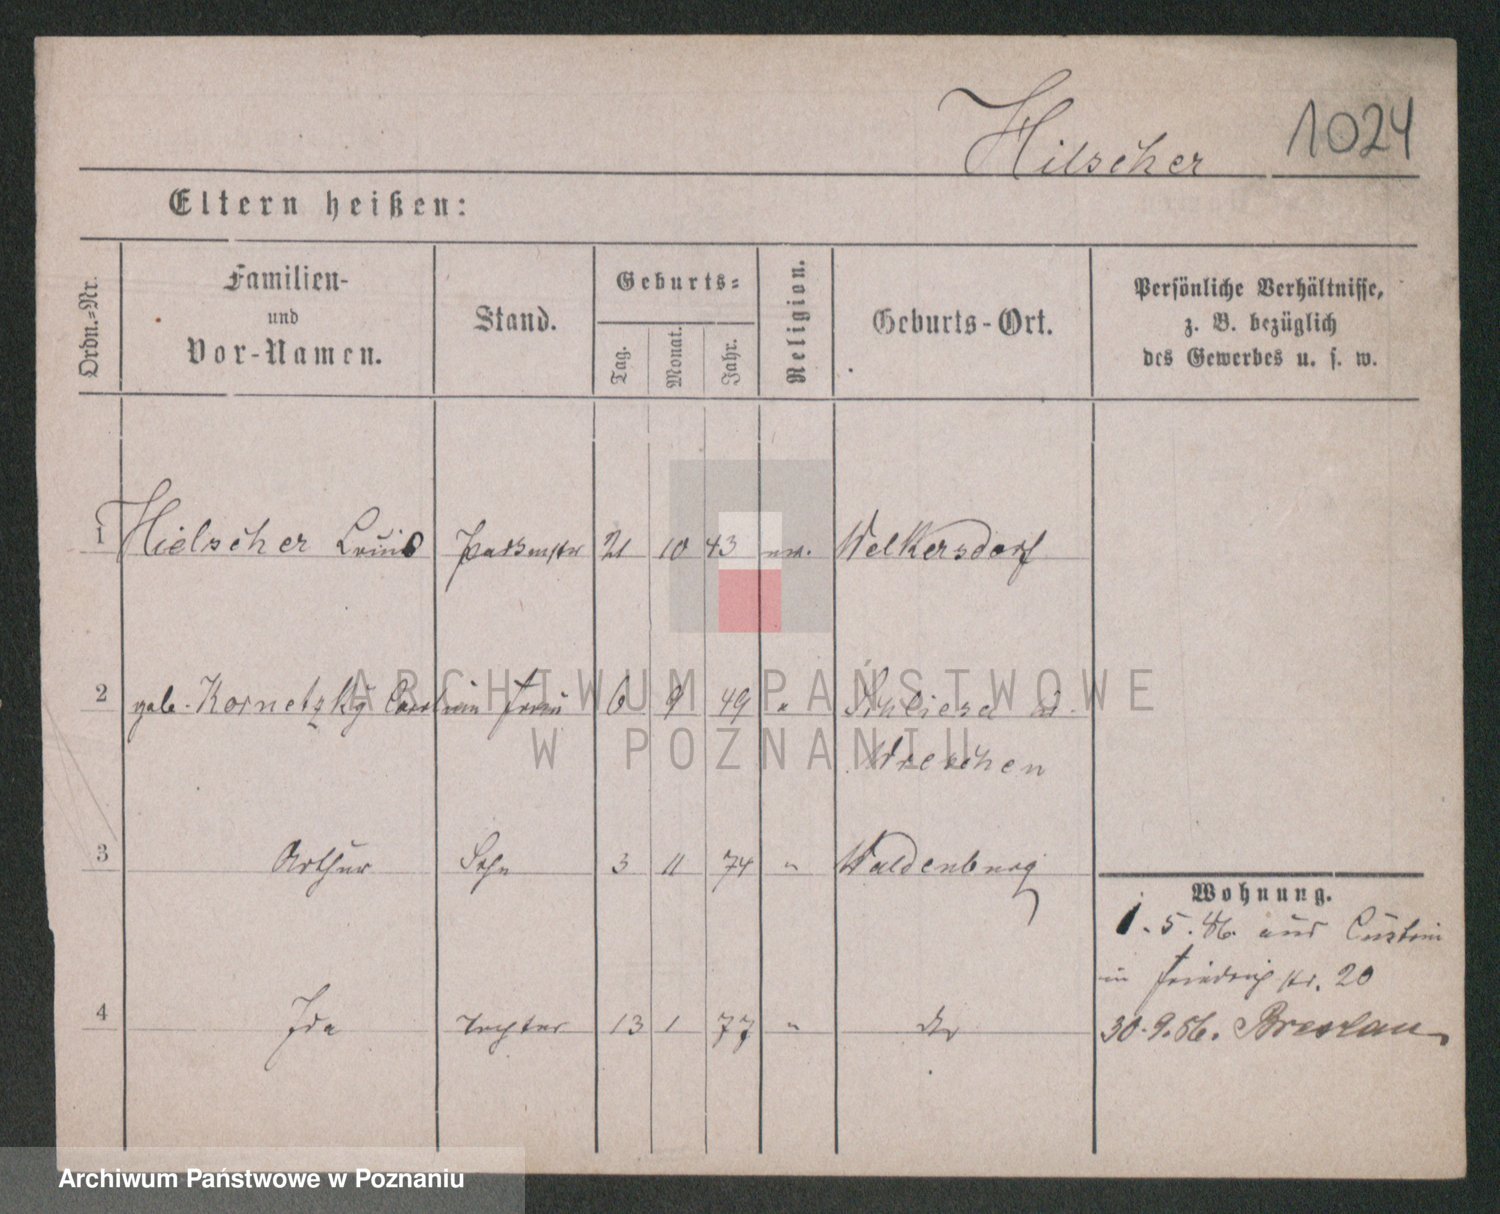 Hilscher 1024
Eltern heißen:
Ordn.-Nr.
Familien-
und
Vor-Namen.
Stand.
Geburts-
Tag.
Monat.
Jahr.
Religion.
Geburts-Ort.
Persönliche Verhältnisse,
z. B. bezüglich
des Gewerbes u. s. w.
1 Hielscher Louis 21 10 43 Welkersdorf
2 geb. Kornetzky Frau 6 9 49 "
Wreschen
3 Arthur Sohn 3 11 74 " Waldenburg
4 Ida Tochter 13 1 77 " do
Wohnung.
1. 5. 86. aus Custrin
in Friedrichstr. 20
30. 9. 86. Breslau
ARCHIWUM PAŃSTWOWE
W POZNANIU
Archiwum Państwowe w Poznaniu